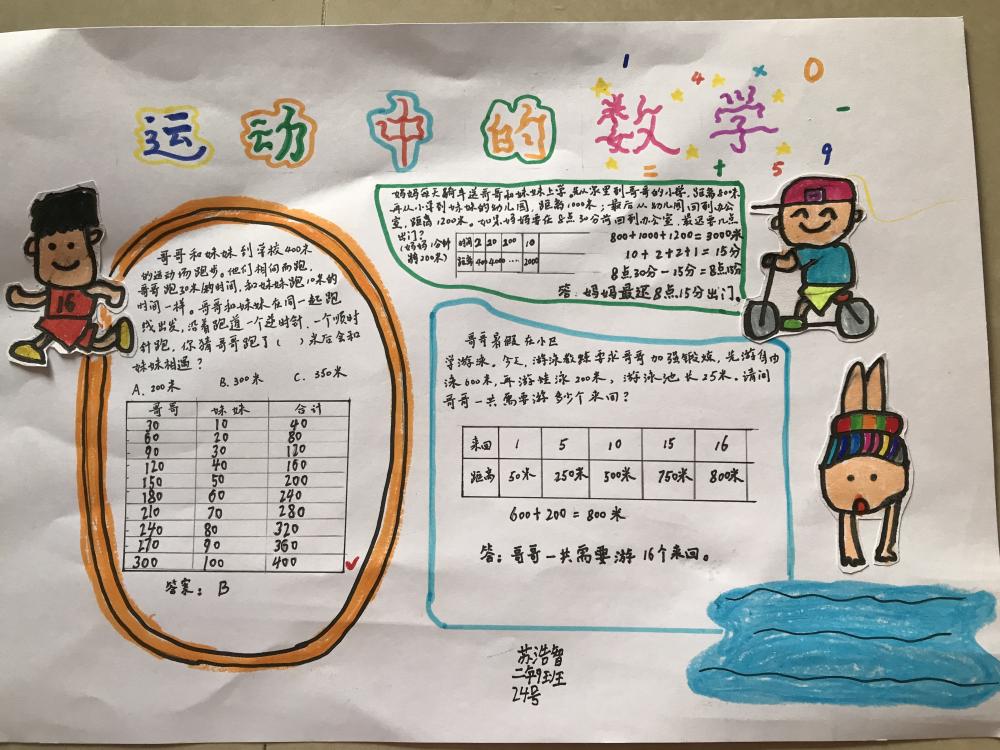 1 4 × 0
运动中的数学
-
= + 5 9
16
哥哥和妹妹到学校400米
的运动场跑步。他们相向而跑,
哥哥跑30米的时间,和妹妹跑10米的
时间一样。哥哥和妹妹在同一起跑
线出发,沿着跑道一个逆时针、一个顺时
针跑,你猜哥哥跑了( )米后会和
妹妹相遇?
A. 200米 B. 300米 C. 350米
哥哥 妹妹 合计
30 10 40
60 20 80
90 30 120
120 40 160
150 50 200
180 60 240
210 70 280
240 80 320
270 90 360
300 100 400
答案: B
妈妈每天骑车送哥哥和妹妹上学,先从家里到哥哥的小学,距离800米
再从小学到妹妹的幼儿园,距离1000米;最后从幼儿园回到办公
室,距离1200米。如果妈妈要在8点30分前回到办公室,最迟要几点
出门?
(妈妈1分钟
骑200米)
时间 2 20 200 10
距离 400 4000 … 2000
800+1000+1200=3000米
10+2+2+1=15分
8点30分-15分=8点15分
答:妈妈最迟8点15分出门。
哥哥暑假在小区
学游泳。今天,游泳教练要求哥哥加强锻炼,先游自由
泳600米,再游蛙泳200米,游泳池长25米。请问
哥哥一共需要游多少个来回?
来回 1 5 10 15 16
距离 50米 250米 500米 750米 800米
600+200=800米
答:哥哥一共需要游16个来回。
苏浩智
二年9班
24号